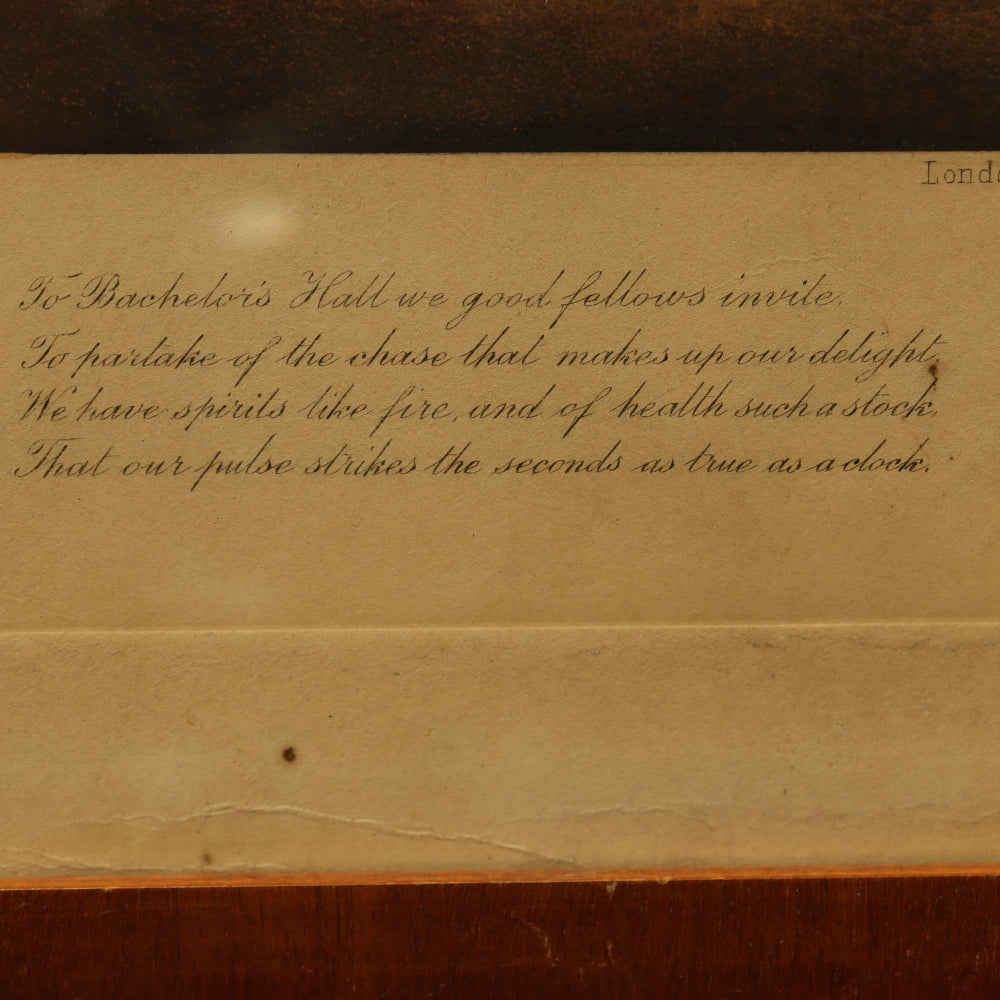 Londo
To Bachelor's Hall we good fellows invite.
To partake of the chase that makes up our delight,
We have spirits like fire, and of health such a stock,
That our pulse strikes the seconds as true as a clock.